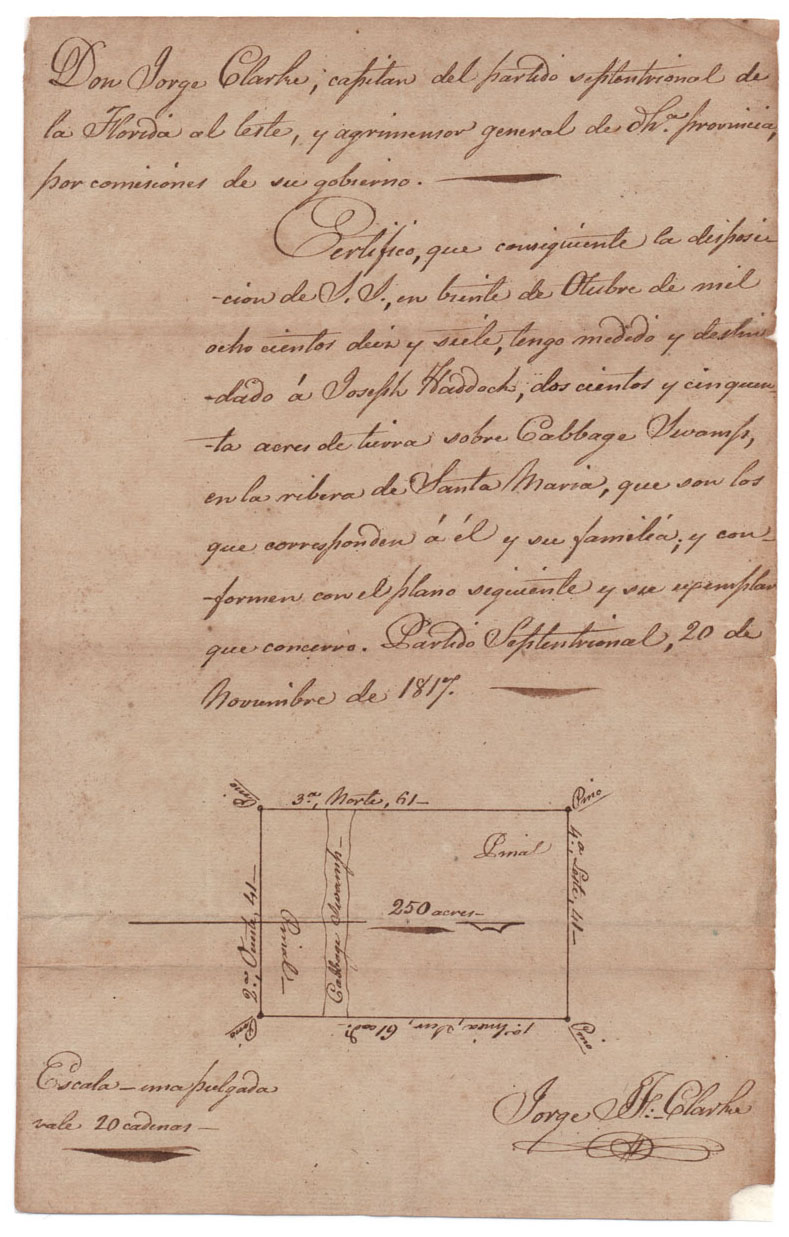 Don Jorge Clarke, capitan del partido septentrional de
la Florida al leste, y agrimensor general de dha. provincia,
por comisiones de su gobierno.
Certifico, que consiguiente la disposi-
-cion de S. S., en trinte de Otubre de mil
ocho cientos diez y siete, tengo medido y deslin-
-dado á Joseph Haddock, dos cientos y cinquen-
-ta acres de tierra sobre Cabbage Swamp,
en la ribera de Santa Maria, que son los
que corresponden á él y su familia; y con-
-formen con el plano siguiente y su exemplar
que concerro. Partido Septentrional, 20 de
Noviembre de 1817.
Pino
3a., Norte, 61–
Pino
Pinal
4a. Leste, 41–
250 acres–
Cabbage Swamp–
Pinal–
2a. Oueste, 41–
Pino
1a. linea, Sur, 61 cads.
Pino
Escala – una pulgada
vale 20 cadenas –
Jorge J. F. Clarke